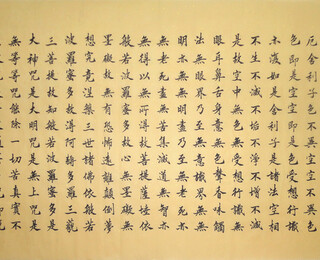 厄舍利子色不異空空不異色
色即是空空即是色受想行識
亦復如是舍利子是諸法空相
不生不滅不垢不淨不增不減
是故空中無色無受想行識無
眼耳鼻舌身意無色聲香味觸
法無眼界乃至無意識界無無
明亦無無明盡乃至無老死亦
無老死盡無苦集滅道無智亦
無得以無所得故菩提薩埵依
般若波羅蜜多故心無罣礙無
罣礙故無有恐怖遠離顛倒夢
想究竟涅槃三世諸佛依般若
波羅蜜多故得阿耨多羅三藐
三菩提故知般若波羅蜜多是
大神咒是大明咒是無上咒是
無等等咒能除一切苦真實不